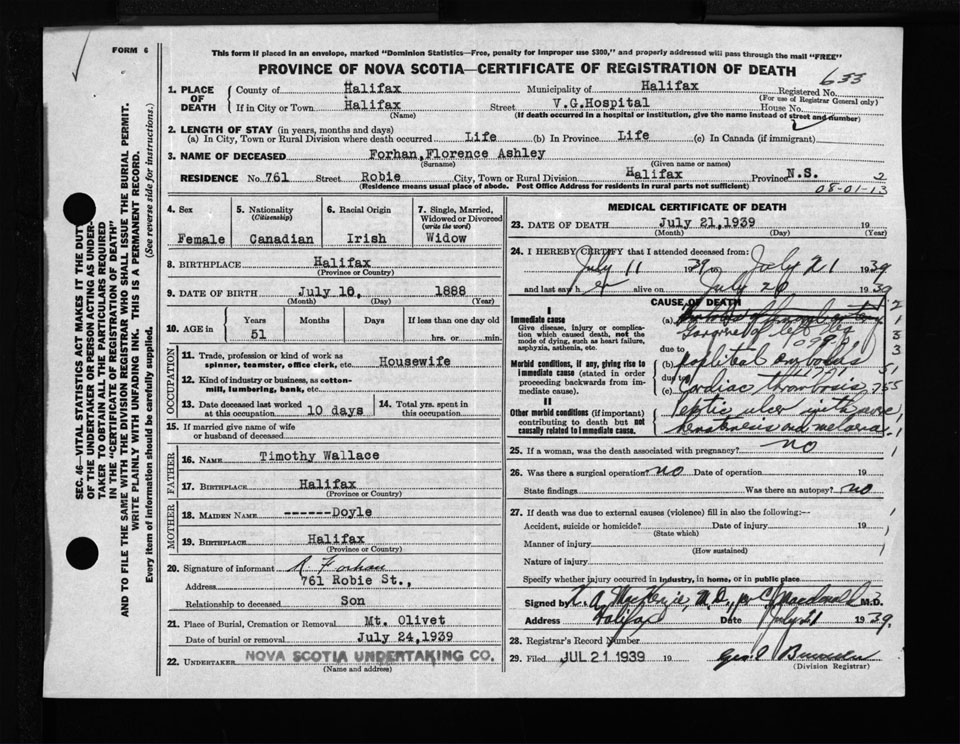 FORM 6
This form if placed in an envelope, marked "Dominion Statistics—Free, penalty for improper use $300," and properly addressed will pass through the mail "FREE"
PROVINCE OF NOVA SCOTIA—CERTIFICATE OF REGISTRATION OF DEATH
633
1. PLACE OF DEATH
County of Halifax Municipality of Halifax Registered No.
(For use of Registrar General only)
If in City or Town Halifax Street V.G.Hospital House No.
(Name) (If death occurred in a hospital or institution, give the name instead of street and number)
2. LENGTH OF STAY (in years, months and days)
(a) In City, Town or Rural Division where death occurred Life (b) In Province Life (c) In Canada (if immigrant)
3. NAME OF DECEASED Forhan, Florence Ashley
(Surname) (Given name or names)
RESIDENCE No. 761 Street Robie City, Town or Rural Division Halifax Province N.S. 2
(Residence means usual place of abode. Post Office Address for residents in rural parts not sufficient)
08-01-13
4. Sex Female
5. Nationality (Citizenship) Canadian
6. Racial Origin Irish
7. Single, Married, Widowed or Divorced (write the word) Widow
8. BIRTHPLACE Halifax
(Province or Country)
9. DATE OF BIRTH July 16, 1888
(Month) (Day) (Year)
10. AGE in Years 51 Months Days If less than one day old hrs. or min.
OCCUPATION
11. Trade, profession or kind of work as spinner, teamster, office clerk, etc. Housewife
12. Kind of industry or business, as cotton-mill, lumbering, bank, etc.
13. Date deceased last worked at this occupation 10 days
14. Total yrs. spent in this occupation
15. If married give name of wife or husband of deceased
FATHER
16. NAME Timothy Wallace
17. BIRTHPLACE Halifax
(Province or Country)
MOTHER
18. MAIDEN NAME ------Doyle
19. BIRTHPLACE Halifax
(Province or Country)
20. Signature of informant R Forhan
Address 761 Robie St.,
Relationship to deceased Son
21. Place of Burial, Cremation or Removal Mt. Olivet
Date of burial or removal July 24,1939
22. UNDERTAKER NOVA SCOTIA UNDERTAKING CO.
(Name and address)
MEDICAL CERTIFICATE OF DEATH
23. DATE OF DEATH July 21,1939 19
(Month) (Day) (Year)
24. I HEREBY CERTIFY that I attended deceased from:
July 11 1939 to July 21 1939
and last saw h er alive on July 20 1939
CAUSE OF DEATH
I
Immediate cause
Give disease, injury or complication which caused death, not the mode of dying, such as heart failure, asphyxia, asthenia, etc.
(a)
Gangrene of left leg
099.31
due to
Morbid conditions, if any, giving rise to immediate cause (stated in order proceeding backwards from immediate cause).
(b) popliteal embolus
due to
(c) Cardiac thrombosis
II
Other morbid conditions (if important) contributing to death but not causally related to immediate cause.
Peptic ulcer with
hematemesis and melaena
25. If a woman, was the death associated with pregnancy? no
26. Was there a surgical operation? no Date of operation 19
State findings Was there an autopsy? no
27. If death was due to external causes (violence) fill in also the following:—
Accident, suicide or homicide? Date of injury 19
(State which)
Manner of injury
(How sustained)
Nature of injury
Specify whether injury occurred in industry, in home, or in public place
Signed by K. A. MacKenzie, M.D., per C. J. Macdonald M.D.
Address Halifax Date July 21 1939.
28. Registrar's Record Number
29. Filed JUL 21 1939 19 Geo.
(Division Registrar)
SEC. 46—VITAL STATISTICS ACT MAKES IT THE DUTY
OF THE UNDERTAKER OR PERSON ACTING AS UNDER-
TAKER TO OBTAIN ALL THE PARTICULARS REQUIRED
IN THE "CERTIFICATE OF REGISTRATION OF DEATH"
AND TO FILE THE SAME WITH THE DIVISION REGISTRAR WHO SHALL ISSUE THE BURIAL PERMIT.
WRITE PLAINLY WITH UNFADING INK. THIS IS A PERMANENT RECORD.
Every item of information should be carefully supplied. (See reverse side for instructions.)